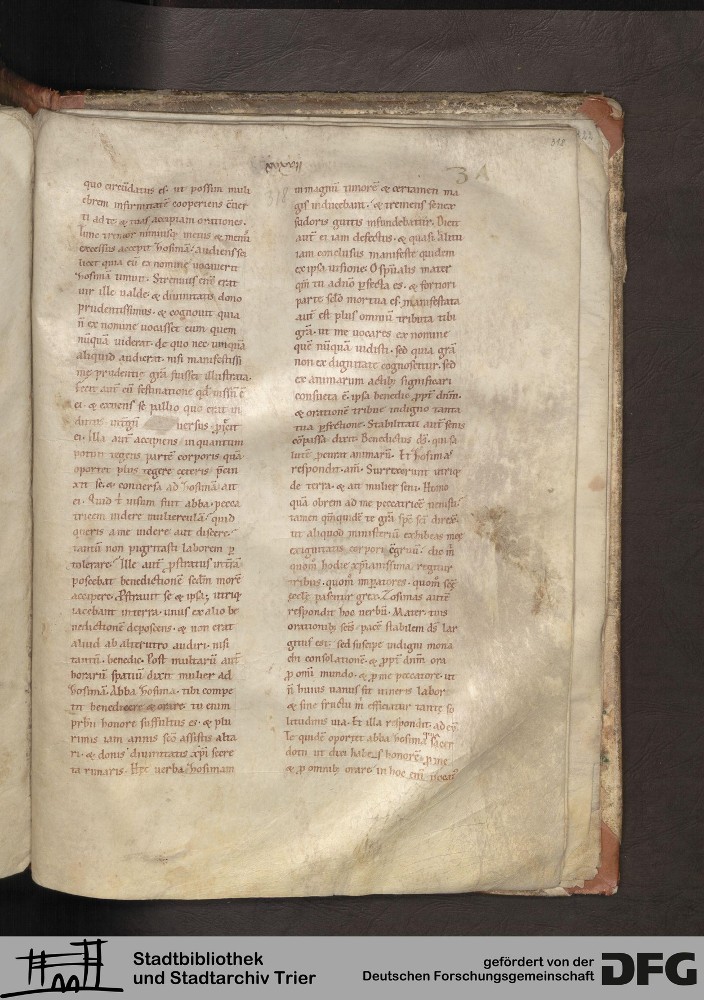 31
318
quo circũdatus es. ut possim muli
ebrem infirmitatẽ cooperiens c̃uer
ti ad te. & tuas accipiam orationes.
hinc tremor nimiusq; metus & mentis
excessus accepit Zosimã. audiens sci
licet quia eũ ex nomine vocaverit
Zosimã unum. Strenuus eni erat
uir ille valde. & divinitatis dono
prudentissimus. & cognovit quia
ñ ex nomine uocasset eum quem
nũquã viderat. de quo nec unquã
aliquid audierat. nisi manifestissi
me prudentie grã fuisset illustrata.
Fecit aut̃ cũ festinatione qd iussũ ẽ
ei. & exuens se pallio quo erat in
dutus
versus. piecit
ei. Illa aut̃ accipiens in quantum
potuit tegens partẽ corporis quã
oportet plus tegere ceteris. p̃cin
xit se. & conversa ad Zosimã ait
ei. Quid tibi visum fuit abba. pecca
tricem videre mulierculã? quid
queris a me videre aut discere.
tantũ non pigritasti laborem p
tolerare? Ille aut̃ p̃stratus in terrã
poscebat benedictionẽ sedm morẽ
accipere. p̃stravit se & ipsa; utriq;
iacebant in terra. unus ex alio be
nedictionẽ deposcens. & non erat
aliud ab alterutro audiri. nisi
tantũ. benedic. Post multarũ aut̃
horarũ spatiũ dixit mulier ad
Zosimã. Abba Zosima. tibi compe
tit benedicere & orare. tu enim
prbri honore suffultus es. & plu
rimis iam annis scõ assistis alta
ri. & donis divinitatis xpi secre
ta rimaris. Hec verba Zosimam
in magnũ timorẽ & certamen ma
gis inducebant. & tremens senex
sudoris guttis infundebatur. Dicit
aut̃ ei iam defectus. & quasi alitu
iam conclusus manifeste quidem
ex ipsa visione. O sp̃ualis mater
qm tu ad dnõ p̃fecta es. & fortiori
parte sclo mortua es. manifestata
aut̃ est plus omniũ tributa tibi
grã. ut me vocares ex nomine
quẽ nũquã vidisti. sed quia grã
non ex dignitate cognoscitur. sed
ex animarum actib; significari
consueta ẽ. ipsa benedic ppt dnm.
& orationẽ tribue indigno tanta
tua p̃fectione. Stabilitati aut̃ senis
c̃passa dixit. Benedictus ds. qui sa
lutẽ pcurat animarũ. Et Zosima
respondit. am̃. Surrexerunt utriq;
de terra. & ait mulier seni. Homo
quã obrem ad me peccatricẽ venisti.
tamen qm̃quidẽ te grã sp̃c sci direx.
ut aliquod ministeriũ exhibeas mee
exiguitatis corpori c̃gruũ. dic m̃
quom̃ hodie xpianissima regitur
tribus. quom̃ impatores. quom̃ scẽ
ecclẽ pascitur grex. Zosimas autẽ
respondit hoc verbũ. Mater. tuis
orationib; scĩs. pacẽ stabilem ds lar
gitus est. sed suscipe indigni mona
chi consolationẽ. & ppt dnm ora
p omi mundo. & p me peccatore. ut
ñ huius vanus sit itineris labor.
& sine fructu m̃ efficiatur tante so
litudinis via. Et illa respondit ad eũ.
Te quidẽ oportet abba Zosima sacer
dotii ut dixi habes honorẽ. p me
& p omnib; orare. in hoc enĩ vocat̃
Stadtbibliothek
und Stadtarchiv Trier
gefördert von der
Deutschen Forschungsgemeinschaft
DFG